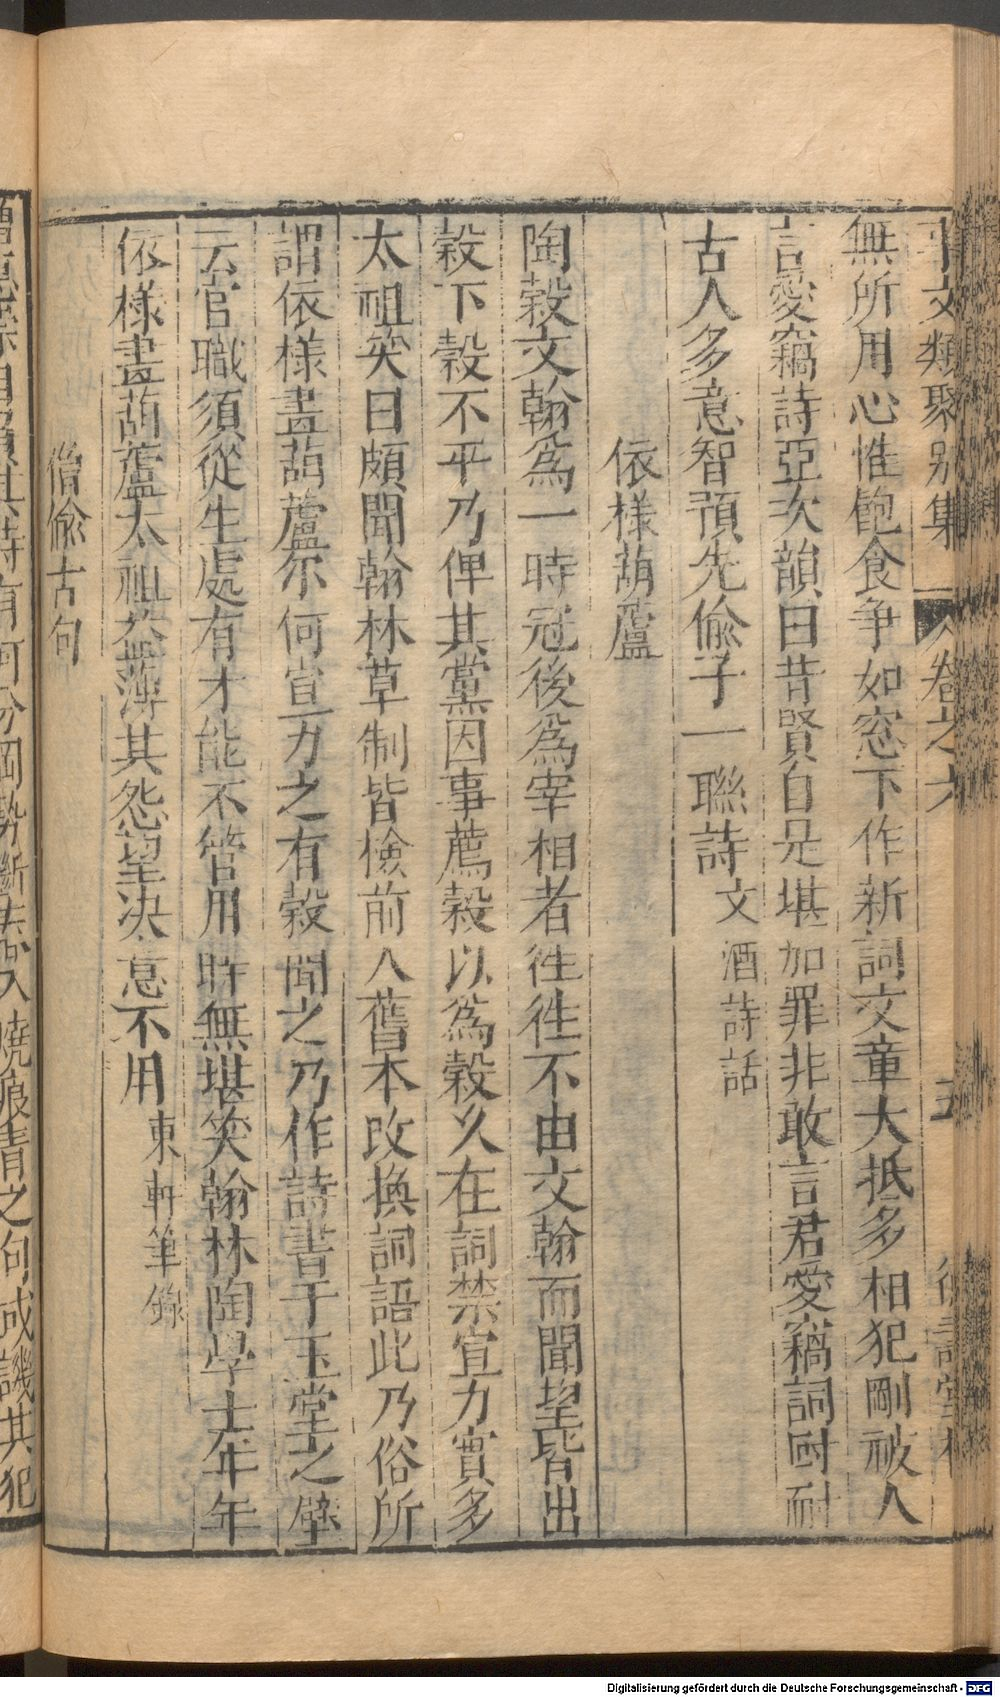 事文類聚別集 卷之六 五
無所用心惟飽食爭如窓下作新詞文章大抵多相犯剛被人
言愛竊詩亞次韻曰昔賢自是堪加罪非敢言君愛竊詞叵耐
古人多意智預先偷子一聯詩 文酒詩話
依樣葫蘆
陶穀文翰爲一時冠後爲宰相者徃徃不由文翰而聞望皆出
穀下穀不平乃俾其黨因事薦穀以爲穀久在詞禁宣力實多
太祖笑曰頗聞翰林草制皆檢前人舊本改換詞語此乃俗所
謂依樣畫葫蘆尔何宣力之有穀聞之乃作詩書于玉堂之壁
云官職須從生處有才能不管用時無堪笑翰林陶學士年年
依樣畫葫蘆太祖益薄其怨望决意不用 東軒筆錄
僧偷古句
詩有河分岡勢斷春入燒痕青之句或譏其犯
Digitalisierung gefördert durch die Deutsche Forschungsgemeinschaft - DFG